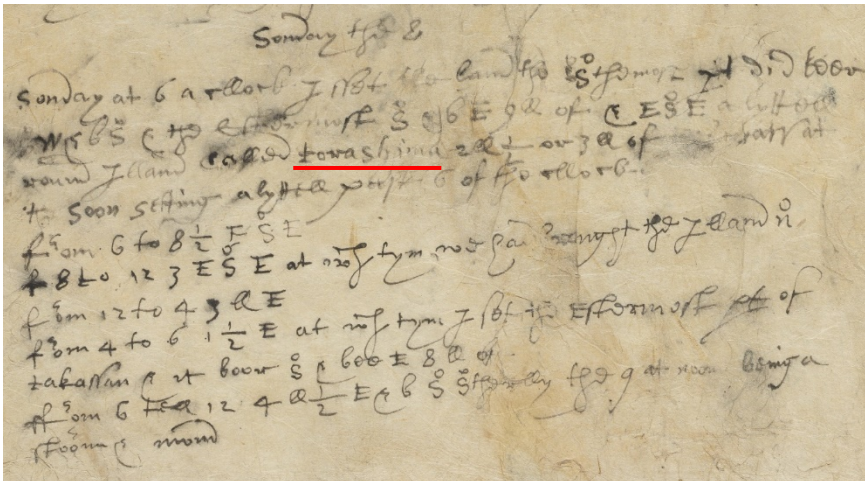 Sonday the 8
Sonday at 6 a cllock I sset the land the Sothermost pt did beer
W & b So & the Estermost So & b E 9 ll of & E So E a lyttell
round Illand called torashima 2 ll 1/2 or 3 ll of that sat
the soon setting a lyttell past 6 of the cllock
from 6 to 8 1/2 E So E
f 8 to 12 3 E So E at wch tym we had brought the Illand No
from 12 to 4 3 ll E
from 4 to 6 1 1/2 E at wch tym I sset the Estermost pt of
takassan & it boor So & bee E 8 ll of
ffrom 6 tell 12 4 ll 1/2 E & b So Sotherlly the 9 at noon being a